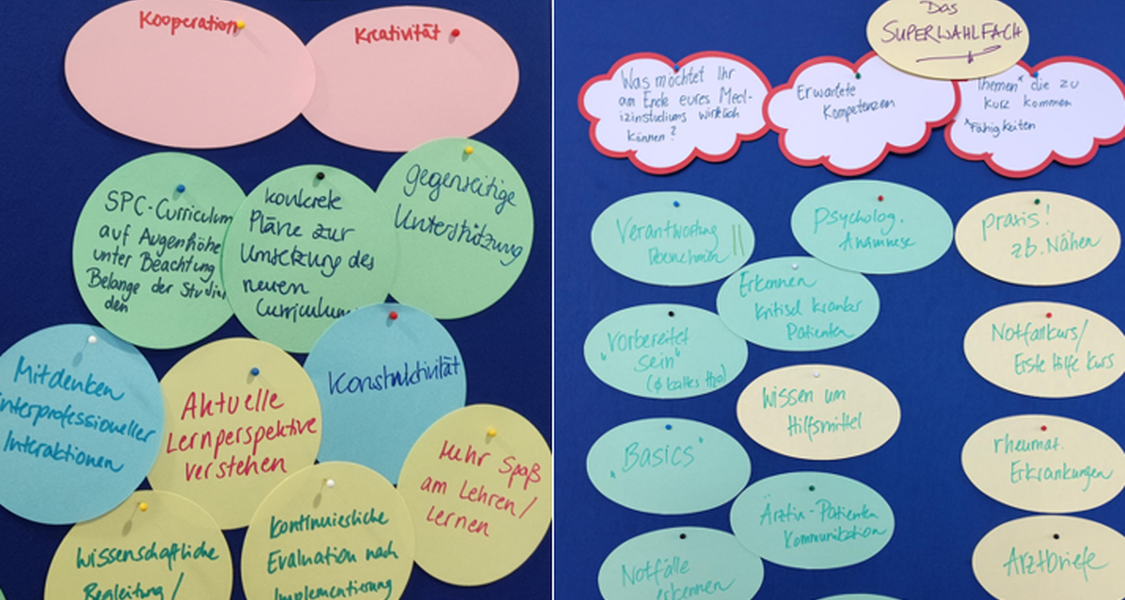 Kooperation
Kreativität
SPC-Curriculum
auf Augenhöhe
unter Beachtung
Belange der Studieren
den
konkrete
Pläne zur
Umsetzung des
neuen
Curriculums
gegenseitige
Unterstützung
Mitdenken
interprofessioneller
Interaktionen
Aktuelle
Lernperspektive
verstehen
Konstruktivität
Mehr Spaß
am Lehren/
Lernen
Wissenschaftliche
Begleitung/
Kontinuierliche
Evaluation nach
Implementierung
Das
SUPERWAHLFACH
Was möchtet Ihr
am Ende eures Med-
izinstudiums wirklich
können?
Erwartete
Kompetenzen
Themen* die zu
kurz kommen
*Fähigkeiten
Verantwortung
übernehmen
Psycholog.
Anamnese
praxis!
zb. Nähen
Erkennen
kritisch kranker
Patienten
"Vorbereitet
sein"
Notfallkurs/
Erste Hilfe Kurs
Wissen um
Hilfsmittel
"Basics"
rheumat.
Erkrankungen
Ärztin-Patienten
Kommunikation
Notfälle
erkennen
Arztbriefe